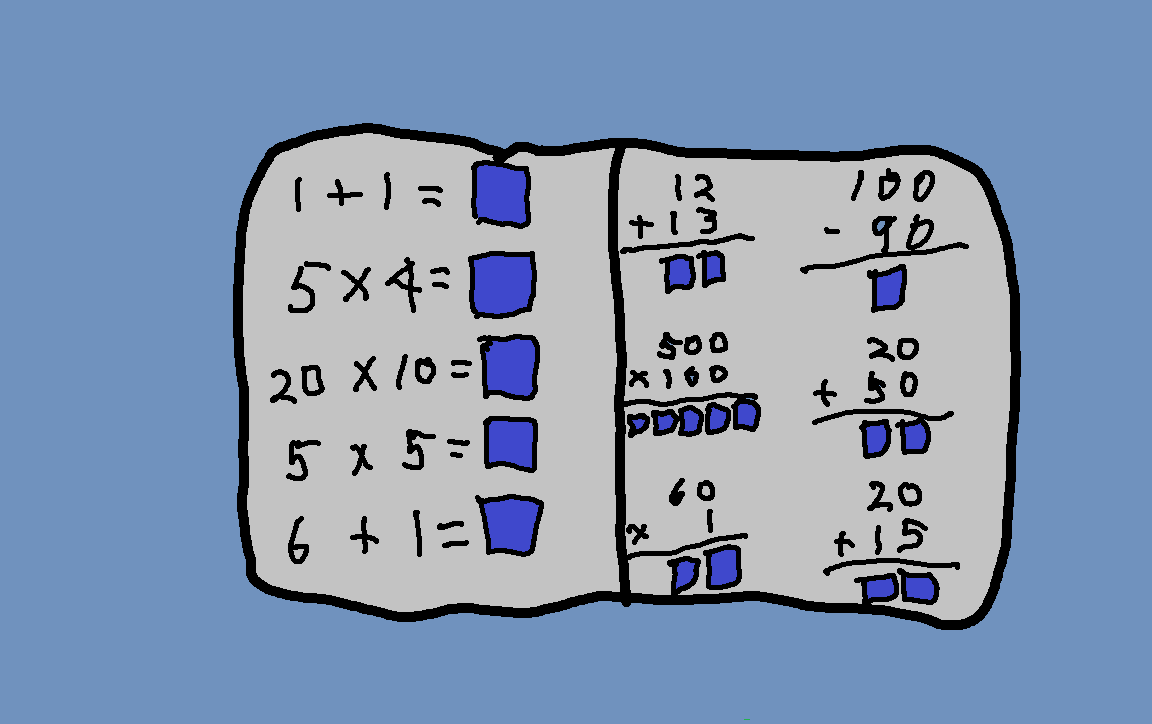 1 + 1 =
5 × 4 =
20 × 10 =
5 × 5 =
6 + 1 =
12
+ 13
100
- 90
500
× 100
20
+ 50
60
× 1
20
+ 15